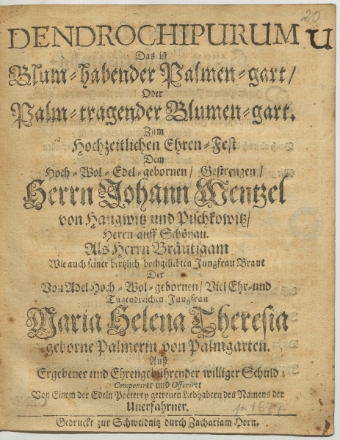 20
DENDROCHIPURUM U
Das ist
Blum-habender Palmen-gart/
Oder
Palm-tragender Blumen-gart.
Zum
Hochzeitlichen Ehren-Fest
Dem
Hoch-Wol-Edel-gebornen/ Gestrengen/
Herrn Johann Mentzel
von Haugwitz und Pischkowitz/
Herrn auff Schönau.
Als Herrn Bräutigam
Wie auch seiner hertzlich hochgeliebten Jungfrau Braut
Der
Von Adel Hoch-Wol-gebornen/ Viel Ehr-und
Tugendreichen Jungfrau
Maria Helena Theresia
geborne Palmerin von Palmgarten.
Auß
Ergebener und Ehrengebührender williger Schuld
Componirt und Offeriret
Von Einem der Edeln Poeterey getreuen Liebhabern des Namens der
Unerfahrner.
Gedruckt zur Schweidnitz durch Zachariam Horn.